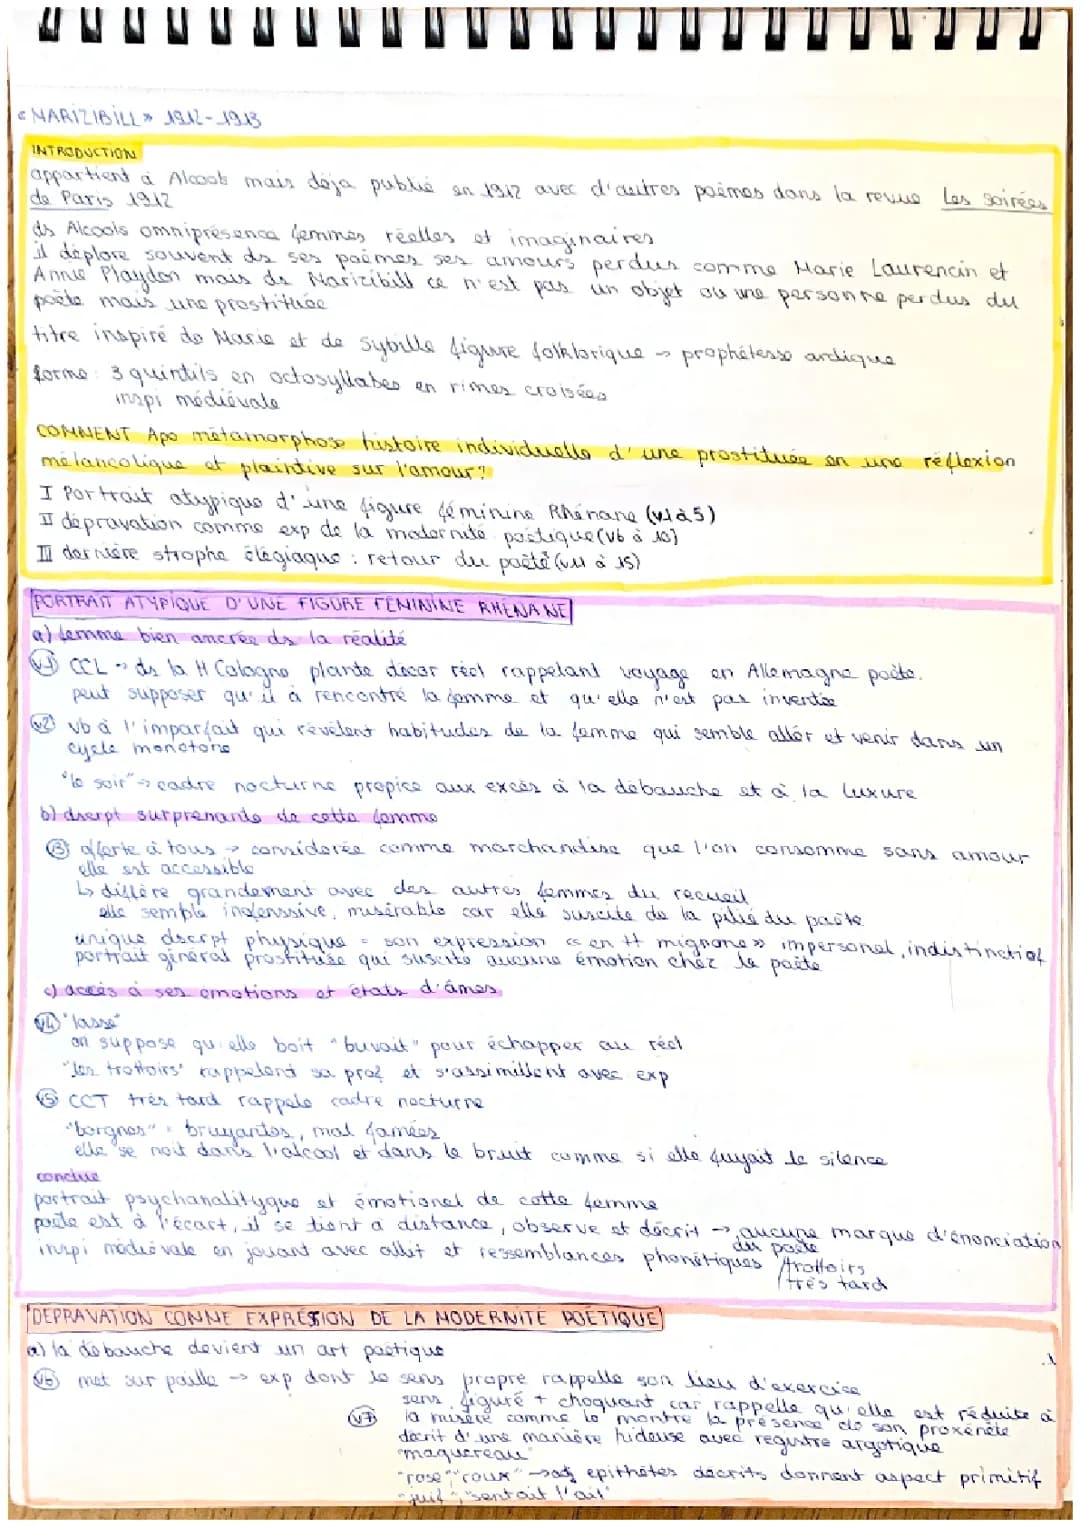 « MARIZIBILL » 1912-1913
INTRODUCTION
appartient à Alcools mais déja publié en 1912 avec d'autres poèmes dans la revue Les Soirées
de Paris 1912
ds Alcools omniprésence femmes réelles et imaginaires
il déplore souvent ds ses poèmes ses amours perdus comme Marie Laurencin et
Annie Playdon mais ds Marizibill ce n'est pas un objet ou une personne perdus du
poète mais une prostituée
titre inspiré de Marie et de Sybille figure folklorique → prophétesse
forme : 3 quintils en octosyllabes en rimes croisées
inspi médiévale
COMMENT Apo métamorphose histoire individuelle d'une prostituée en une réflexion
mélancolique et plaintive sur l'amour?
I Portrait atypique d'une figure féminine Rhénane (v1 à 5)
II dépravation comme exp de la modernité poétique (v6 à 10)
III dernière strophe élégiaque : retour du poète (v11 à 15)
PORTRAIT ATYPIQUE D'UNE FIGURE FEMININE RHENANE
a) femme bien ancrée ds la réalité
v1 CCL → ds la H Cologne plante décor réel rappelant voyage en Allemagne poète.
peut supposer qu'il à rencontré la femme et qu'elle n'est pas inventée
v2 vb à l'imparfait qui révèlent habitudes de la femme qui semble aller et venir dans un
cycle monotone
"le soir" → cadre nocturne propice aux excès à la débauche et à la luxure
b) dscrpt surprenante de cette femme
v3 offerte à tous → considérée comme marchandise que l'on consomme sans amour
elle est accessible
↳ diffère grandement avec des autres femmes du recueil
elle semble inofenssive, misérable car elle suscite de la pitié du poète
unique dscrpt physique = son expression « en tt mignone » impersonel, indistinctif
portrait général prostituée qui suscite aucune émotion chez le poète
c) accès à ses émotions et états d'âmes
v4 "lasse"
on suppose qu'elle boit "buvait" pour échapper au réel
"les trottoirs" rappelent sa prof et s'assimillent avec exp
v5 CCT très tard rappele cadre nocturne
"borgnes" = bruyantes, mal famées
elle se noit dans l'alcool et dans le bruit comme si elle fuyait le silence
conclue
portrait psychanalityque et émotionel de cette femme
poète est à l'écart, il se tient à distance, observe et décrit → aucune marque d'énonciation
du poète
inspi médiévale en jouant avec allit et ressemblances phonétiques / trottoirs
/ très tard
DEPRAVATION COMME EXPRESSION DE LA MODERNITE POETIQUE
a) la débauche devient un art poétique
v6 met sur paille → exp dont le sens propre rappelle son lieu d'exercice
sens figuré + choquant car rappelle qu'elle est réduite à
v7 la misère comme le montre la présence de son proxénète
décrit d'une manière hideuse avec registre argotique
"maquereau"
"rose", "roux" → adj epithètes décrits donnent aspect primitif
"juif", "sentait l'ail"